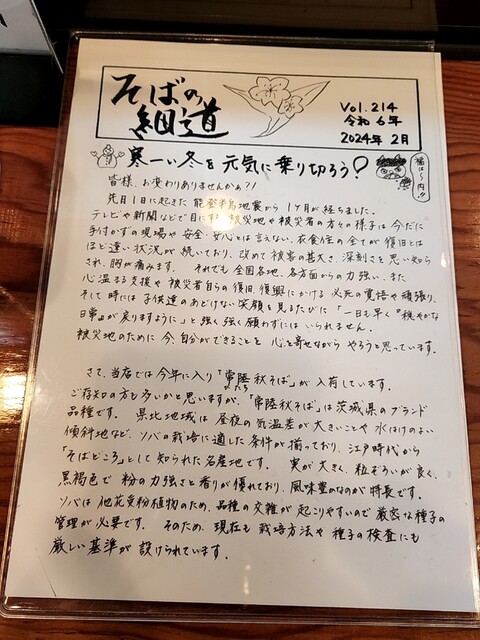 そばの
細道
Vol.214
令和6年
2024年2月
寒ーい冬を元気に乗り切ろう
福は〜内!!
皆様、お変わりありませんかぁ?!
先月1日に起きた能登半島地震から1ヶ月が経ちました。
テレビや新聞などで目にする被災地や被災者の方々の様子は今だに
手付かずの現場や安全・安心とは言えない衣食住の全てが復旧とは
ほど遠い状況が続いており、改めて被害の甚大さ、深刻さを思い知ら
され、胸が痛みます。それでも全国各地、各方面からの力強い、また
心温まる支援や被災者自らの復旧、復興にかける必死の覚悟や頑張り、
そして時には子供達のあどけない笑顔を見るたびに "一日も早く"穏やかな
日常が戻りますように"と強く強く願わずにはいられません。
被災地のために今自分ができることを心を寄せながらやろうと思っています。
さて、当店では今年に入り「常陸秋そば」が入荷しています。
ひたち
ご存知の方も多いかと思いますが、「常陸秋そば」は茨城県のブランド
品種です。県北地域は昼夜の気温差が大きいことや水はけのよい
傾斜地など、ソバの栽培に適した条件が揃っており、江戸時代から
「そばどころ」として知られた名産地です。実が大きく、粒ぞろいが良く、
黒褐色で粉の力強さと香りが優れており、風味豊かなのが特長です。
ソバは他花受粉植物のため、品種の交雑が起こりやすいので厳密な種子の
管理が必要です。そのため、現在も栽培方法や種子の検査にも
厳しい基準が設けられています。